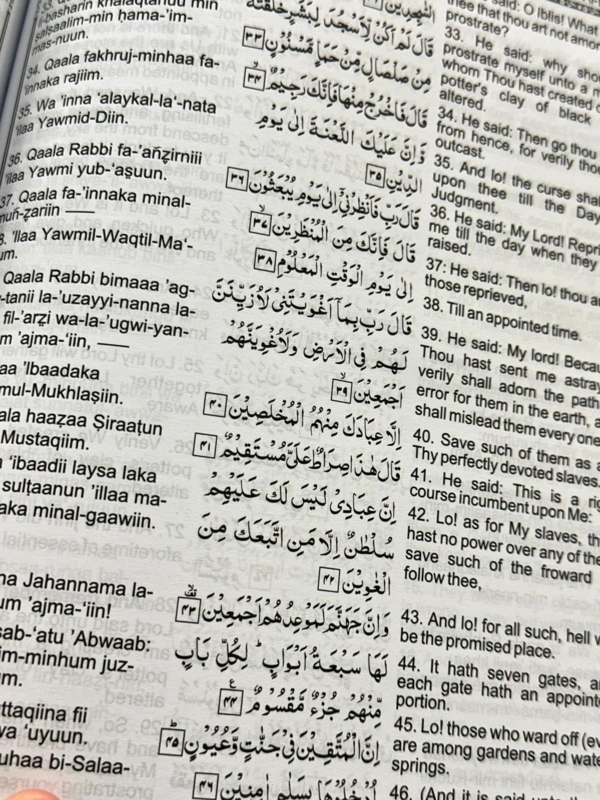 l-basharin khalaqtahuu min
salsaalim-min hama-'im-
mas-nuun.
34. Qaala fakhruj-minhaa fa-
'innaka rajiim.
35. Wa 'inna 'alaykal-la'-nata
'ilaa Yawmid-Diin.
36. Qaala Rabbi fa-'añẓirniii
'ilaa Yawmi yub-'aşuun.
37. Qaala fa-'innaka minal-
muñ-ẓariin ___
8. 'Ilaa Yawmil-Waqtil-Ma'-
um.
Qaala Rabbi bimaaa 'ag-
-tanii la-'uzayyi-nanna la-
fil-'arẓi wa-la-'ugwi-yan-
m 'ajma-'iin, ___
aa 'Ibaadaka
mul-Mukhlaşiin.
ala haaẓaa Şiraaṭun
Mustaqiim.
'ibaadii laysa laka
sulṭaanun 'illaa ma-
aka minal-gaawiin.
na Jahannama la-
um 'ajma-'iin!
sab-'atu 'Abwaab:
im-minhum juz-
m.
ttaqiina fii
wa 'uyuun,
uhaa bi-Salaa-
السّٰجِدِيْنَ
قَالَ لَمْ اَكُنْ لِّاَسْجُدَ لِبَشَرٍ خَلَقْتَهٗ
مِنْ صَلْصَالٍ مِّنْ حَمَاٍ مَّسْنُوْنٍ ٣٣
قَالَ فَاخْرُجْ مِنْهَا فَاِنَّكَ رَجِيْمٌ ٣٤
وَّاِنَّ عَلَيْكَ اللَّعْنَةَ اِلٰى يَوْمِ
الدِّيْنِ ٣٥
قَالَ رَبِّ فَاَنْظِرْنِيْٓ اِلٰى يَوْمِ يُبْعَثُوْنَ ٣٦
قَالَ فَاِنَّكَ مِنَ الْمُنْظَرِيْنَ ٣٧
اِلٰى يَوْمِ الْوَقْتِ الْمَعْلُوْمِ ٣٨
قَالَ رَبِّ بِمَآ اَغْوَيْتَنِيْ لَاُزَيِّنَنَّ
لَهُمْ فِى الْاَرْضِ وَلَاُغْوِيَنَّهُمْ
اَجْمَعِيْنَ ٣٩
اِلَّا عِبَادَكَ مِنْهُمُ الْمُخْلَصِيْنَ ٤٠
قَالَ هٰذَا صِرَاطٌ عَلَيَّ مُسْتَقِيْمٌ ٤١
اِنَّ عِبَادِيْ لَيْسَ لَكَ عَلَيْهِمْ
سُلْطٰنٌ اِلَّا مَنِ اتَّبَعَكَ مِنَ
الْغٰوِيْنَ ٤٢
وَاِنَّ جَهَنَّمَ لَمَوْعِدُهُمْ اَجْمَعِيْنَ ٤٣
لَهَا سَبْعَةُ اَبْوَابٍ ۭ لِكُلِّ بَابٍ
مِّنْهُمْ جُزْءٌ مَّقْسُوْمٌ ٤٤
اِنَّ الْمُتَّقِيْنَ فِيْ جَنّٰتٍ وَّعُيُوْنٍ ٤٥
اُدْخُلُوْهَا بِسَلٰمٍ اٰمِنِيْنَ ٤٦
said: O Iblis! What
thee that thou art not amor
prostrate?
33. He said: why sho
prostrate myself unto a m
whom Thou hast created o
potter's clay of black
altered.
34. He said: Then go thou
from hence, for verily thou
outcast.
35. And lo! the curse shal
upon thee till the Day
Judgment.
36. He said: My Lord! Repri
me till the day when they
raised.
37: He said: Then lo! thou a
those reprieved,
38. Till an appointed time.
39. He said: My lord! Becau
Thou hast sent me astray
verily shall adorn the path
error for them in the earth, a
shall mislead them every one
40. Save such of them as a
Thy perfectly devoted slaves.
41. He said: This is a rig
course incumbent upon Me:
42. Lo! as for My slaves, th
hast no power over any of the
save such of the froward
follow thee,
43. And lo! for all such, hell w
be the promised place.
44. It hath seven gates, an
each gate hath an appointe
portion.
45. Lo! those who ward off (ev
are among gardens and wate
springs.
46. (And it is said unto the